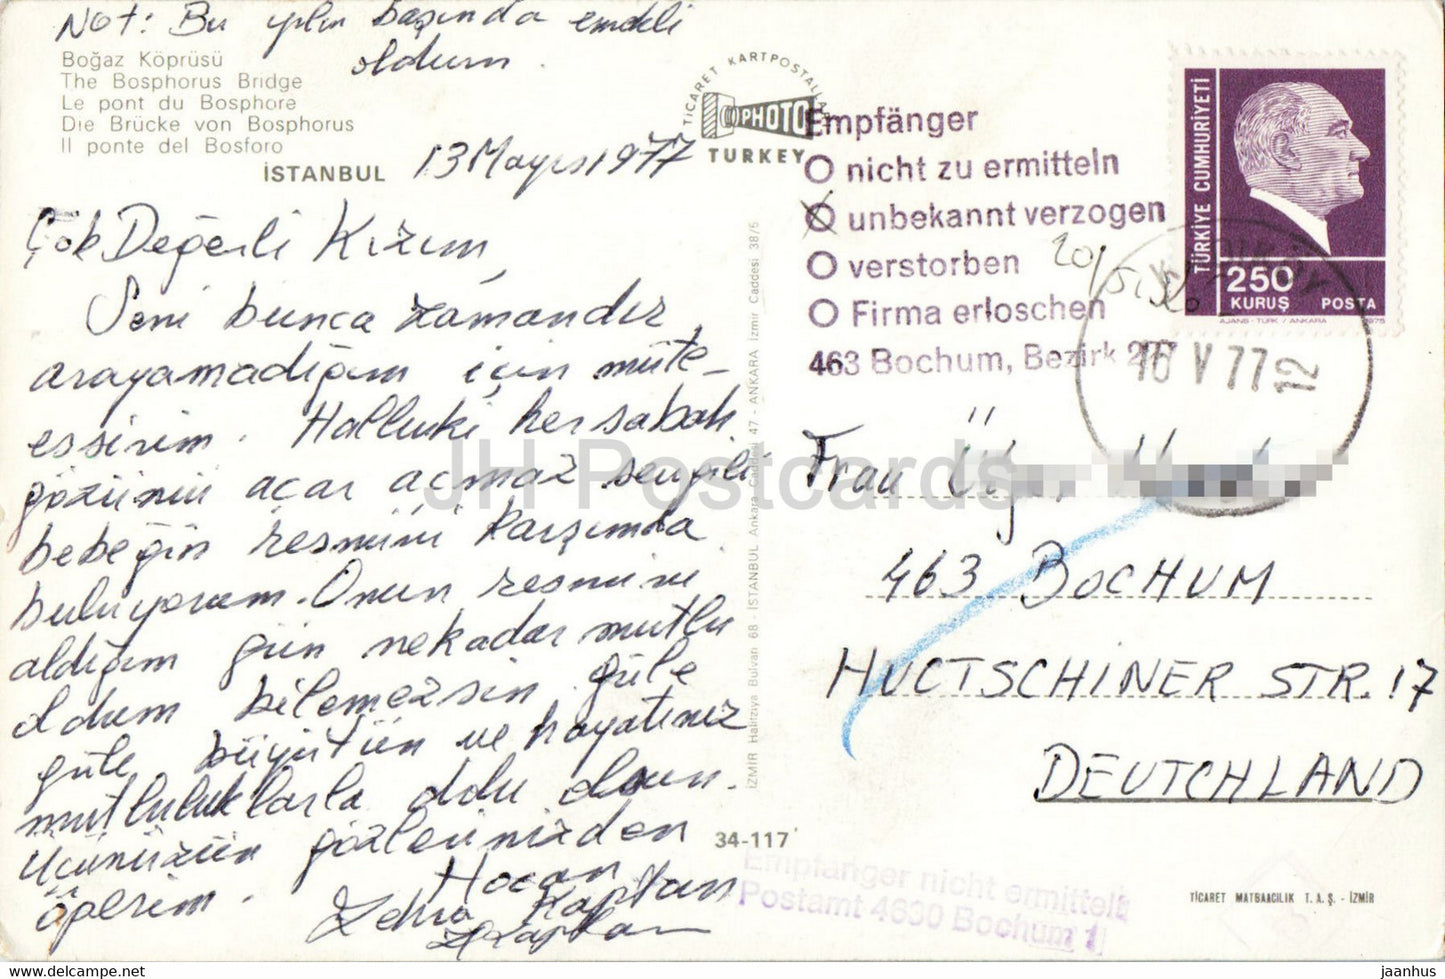 Not: Bu yılın başında emekli
oldum.
Boğaz Köprüsü
The Bosphorus Bridge
Le pont du Bosphore
Die Brücke von Bosphorus
Il ponte del Bosforo
İSTANBUL
13 Mayıs 1977
Çok Değerli Kızım,
Seni bunca zamandır
arayamadığım için müte-
essirim. Halbuki her sabah
gözümü açar açmaz sevgili
bebeğin resmini karşımda
buluyorum. Onun resmini
aldığım gün nekadar mutlu
oldum bilemezsin. Güle
güle büyütün ve hayatınız
mutluluklarla dolu olsun.
Üçünüzün gözlerinizden
öperim.
Hocan
Zehra Kaptan
TİCARET KARTPOSTALLARI
PHOTO
TURKEY
İZMİR Halitziya Bulvarı 68 - İSTANBUL Ankara Caddesi 47 - ANKARA İzmir Caddesi 38/5
34-117
Empfänger
O nicht zu ermitteln
O unbekannt verzogen
O verstorben
O Firma erloschen
463 Bochum, Bezirk
TÜRKİYE CUMHURİYETİ
250
KURUŞ POSTA
AJANS - TÜRK / ANKARA 1975
16 V 77 12
Frau
463 BOCHUM
HUCTSCHINER STR. 17
DEUTCHLAND
Empfänger nicht ermittelt
Postamt 4630 Bochum 1
TİCARET MATBAACILIK T.A.Ş. - İZMİR
JH Postcards
https://jhpostcards.com/
jaanhus